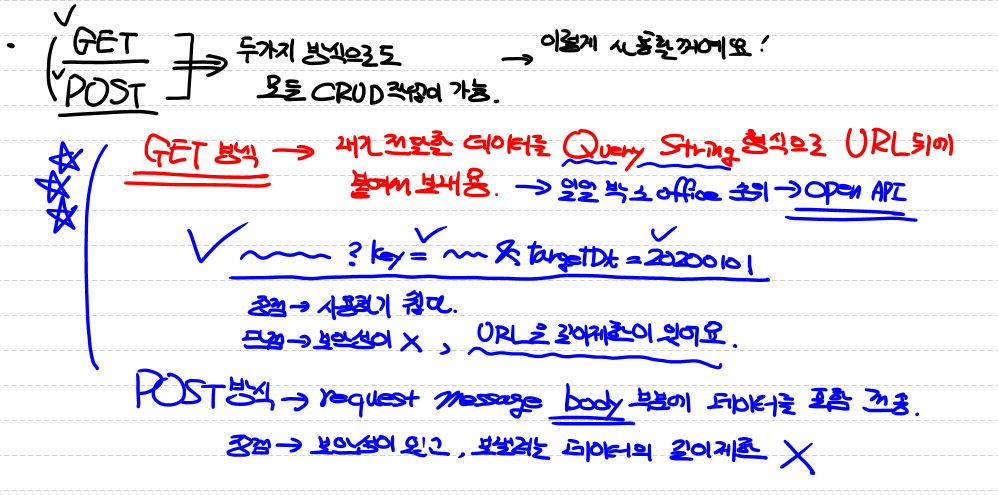 GET
POST
두가지 방식으로도 → 이렇게 사용할꺼에요!
모든 CRUD 작업이 가능.
GET 방식 → 내가 전달할 데이터를 Query String 형식으로 URL뒤에
붙여서 보내용. → 일일 박스 office 순위 → Open API
? key = & targetDt = 20200101
장점 → 사용하기 쉽다.
단점 → 보안성이 X, URL은 길이제한이 있어요.
POST방식 → request message body 부분에 데이터를 포함 전송.
장점 → 보안성이 있고, 보낼려는 데이터의 길이제한 X